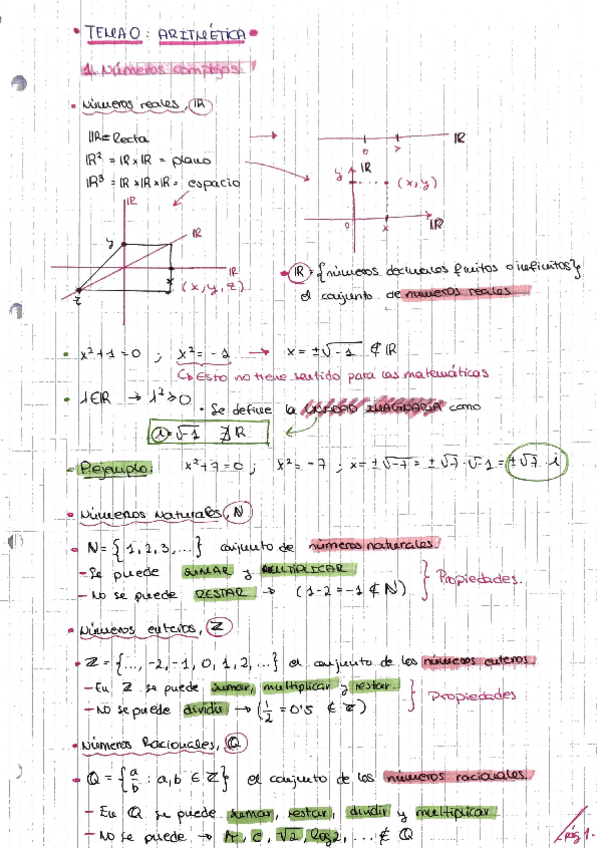 • TEMA 0: ARITMÉTICA •
1. Números complejos
• Números reales, ℝ
ℝ = Recta
ℝ² = ℝ × ℝ = plano
ℝ³ = ℝ × ℝ × ℝ = espacio
ℝ
0
ℝ
y
(x, y)
0
x
ℝ
ℝ
y
ℝ
ℝ
x
(x, y, z)
z
• ℝ = {números decimales finitos o infinitos}
el conjunto de números reales
• x² + 1 = 0 ; x² = -1 → x = ±√-1 ∉ ℝ
↳ Esto no tiene sentido para las matemáticas
→ λ² ≥ 0
• Se define la UNIDAD IMAGINARIA como
i = √-1
• Ejemplo: x² + 7 = 0 ; x² = -7 ; x = ±√-7 = ±√7 · √-1 = ±√7 · i
• Números Naturales, N
• N = {1, 2, 3, ...} conjunto de números naturales.
- Se puede SUMAR y MULTIPLICAR
- No se puede RESTAR → (1-2 = -1 ∉ N)
} Propiedades.
• Números enteros, ℤ
• ℤ = {..., -2, -1, 0, 1, 2, ...} el conjunto de los números enteros
- En ℤ se puede sumar, multiplicar y restar.
- No se puede dividir → (1/2 = 0'5 ∉ ℤ)
} Propiedades
• Números Racionales, ℚ
• ℚ = {a/b : a, b ∈ ℤ} el conjunto de los números racionales.
- En ℚ se puede sumar, restar, dividir y multiplicar
- No se puede → π, e, √2, log 2, ... ∉ ℚ
pág 1.